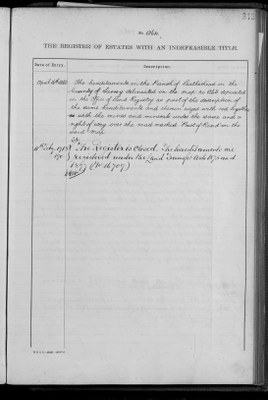 No. 862.
THE REGISTER OF ESTATES WITH AN INDEFEASIBLE TITLE.
Date of Entry.
Description.
The hereditaments in the Parish of in the
County of Surrey delineated on the map No 862 deposited
in the Office of Land Registry as part of the description of
the same hereditaments and thereon edged with red together
with the mines and minerals under the same and a
right of way over the road marked Part of Road on the
said map.
The Register is closed. The hereditaments are
registered under the Land Transfer Acts 1875 and
1897